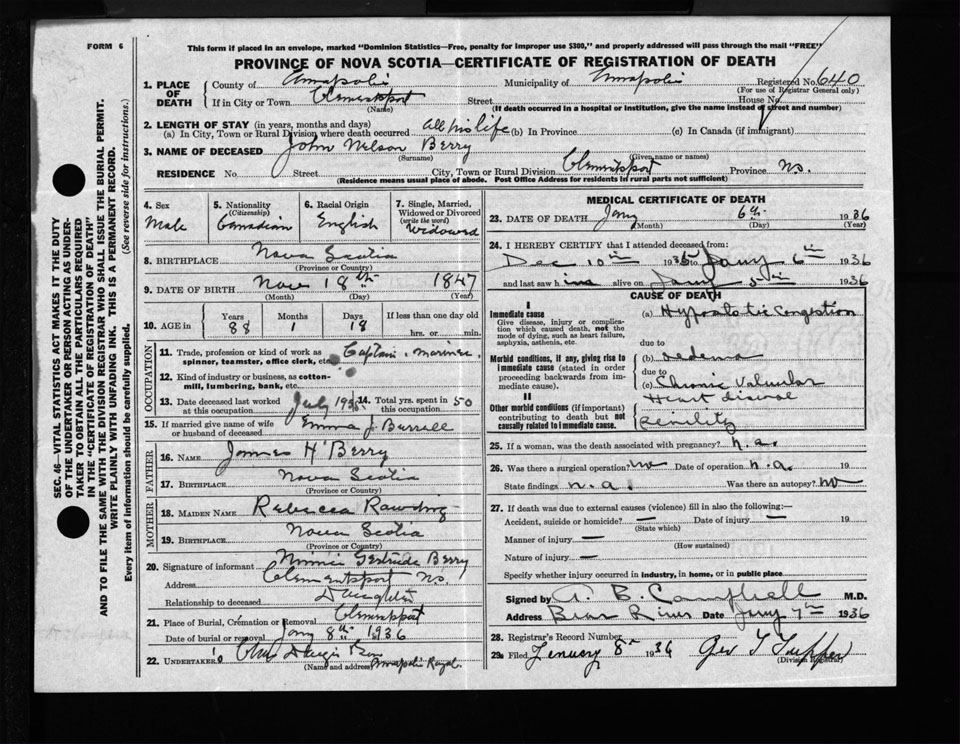 FORM 6
This form if placed in an envelope, marked "Dominion Statistics—Free, penalty for improper use $300," and properly addressed will pass through the mail "FREE"
PROVINCE OF NOVA SCOTIA—CERTIFICATE OF REGISTRATION OF DEATH
1. PLACE OF DEATH County of Annapolis Municipality of Annapolis Registered No. 640
(For use of Registrar General only)
If in City or Town Clementsport Street House No.
(Name) (If death occurred in a hospital or institution, give the name instead of street and number)
2. LENGTH OF STAY (in years, months and days)
(a) In City, Town or Rural Division where death occurred all his life (b) In Province (c) In Canada (if immigrant)
3. NAME OF DECEASED John Nelson Berry
(Surname) (Given name or names)
RESIDENCE No. Street City, Town or Rural Division Clementsport Province N.S.
(Residence means usual place of abode. Post Office Address for residents in rural parts not sufficient)
4. Sex Male
5. Nationality (Citizenship) Canadian
6. Racial Origin English
7. Single, Married, Widowed or Divorced (write the word) Widowed
8. BIRTHPLACE Nova Scotia
(Province or Country)
9. DATE OF BIRTH Nov 18th 1847
(Month) (Day) (Year)
10. AGE in Years 88 Months 1 Days 18 If less than one day old hrs. or min.
OCCUPATION
11. Trade, profession or kind of work as spinner, teamster, office clerk, etc. Captain, mariner.
12. Kind of industry or business, as cotton-mill, lumbering, bank, etc.
13. Date deceased last worked at this occupation July
14. Total yrs. spent in this occupation 50
15. If married give name of wife or husband of deceased Emma J.
FATHER
16. NAME James H Berry
17. BIRTHPLACE Nova Scotia
(Province or Country)
MOTHER
18. MAIDEN NAME Rebecca Rawding
19. BIRTHPLACE Nova Scotia
(Province or Country)
20. Signature of informant Minnie Gertrude Berry
Address Clementsport N.S.
Relationship to deceased Daughter
21. Place of Burial, Cremation or Removal Clementsport
Date of burial or removal Jany 8th 1936
22. UNDERTAKER Annapolis Royal
(Name and address)
MEDICAL CERTIFICATE OF DEATH
23. DATE OF DEATH Jany 6th 1936
(Month) (Day) (Year)
24. I HEREBY CERTIFY that I attended deceased from:
Dec 10th 1935 to Jany 6th 1936
and last saw him alive on Jany 5th 1936
CAUSE OF DEATH
I
Immediate cause (a) Hypostatic Congestion
Give disease, injury or complication which caused death, not the mode of dying, such as heart failure, asphyxia, asthenia, etc.
due to
Morbid conditions, if any, giving rise to immediate cause (stated in order proceeding backwards from immediate cause). (b) oedema
due to
(c) Chronic Valvular
Heart disease
II
Other morbid conditions (if important) contributing to death but not causally related to immediate cause. Senility
25. If a woman, was the death associated with pregnancy? n.a.
26. Was there a surgical operation? no Date of operation n.a. 19
State findings n.a. Was there an autopsy? no
27. If death was due to external causes (violence) fill in also the following:—
Accident, suicide or homicide? — Date of injury — 19
(State which)
Manner of injury —
(How sustained)
Nature of injury —
Specify whether injury occurred in industry, in home, or in public place
Signed by A. B. Campbell M.D.
Address Bear River Date Jany 7th 1936
28. Registrar's Record Number
29. Filed January 8th 1936 Geo T Tupper
(Division Registrar)
SEC. 46—VITAL STATISTICS ACT MAKES IT THE DUTY
OF THE UNDERTAKER OR PERSON ACTING AS UNDER-
TAKER TO OBTAIN ALL THE PARTICULARS REQUIRED
IN THE "CERTIFICATE OF REGISTRATION OF DEATH"
AND TO FILE THE SAME WITH THE DIVISION REGISTRAR WHO SHALL ISSUE THE BURIAL PERMIT.
WRITE PLAINLY WITH UNFADING INK. THIS IS A PERMANENT RECORD.
Every item of information should be carefully supplied. (See reverse side for instructions.)